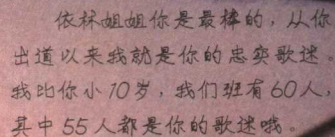 依林姐姐你是最棒的，从你
出道以来我就是你的忠实歌迷。
我比你小10岁，我们班有60人，
其中55人都是你的歌迷哦。